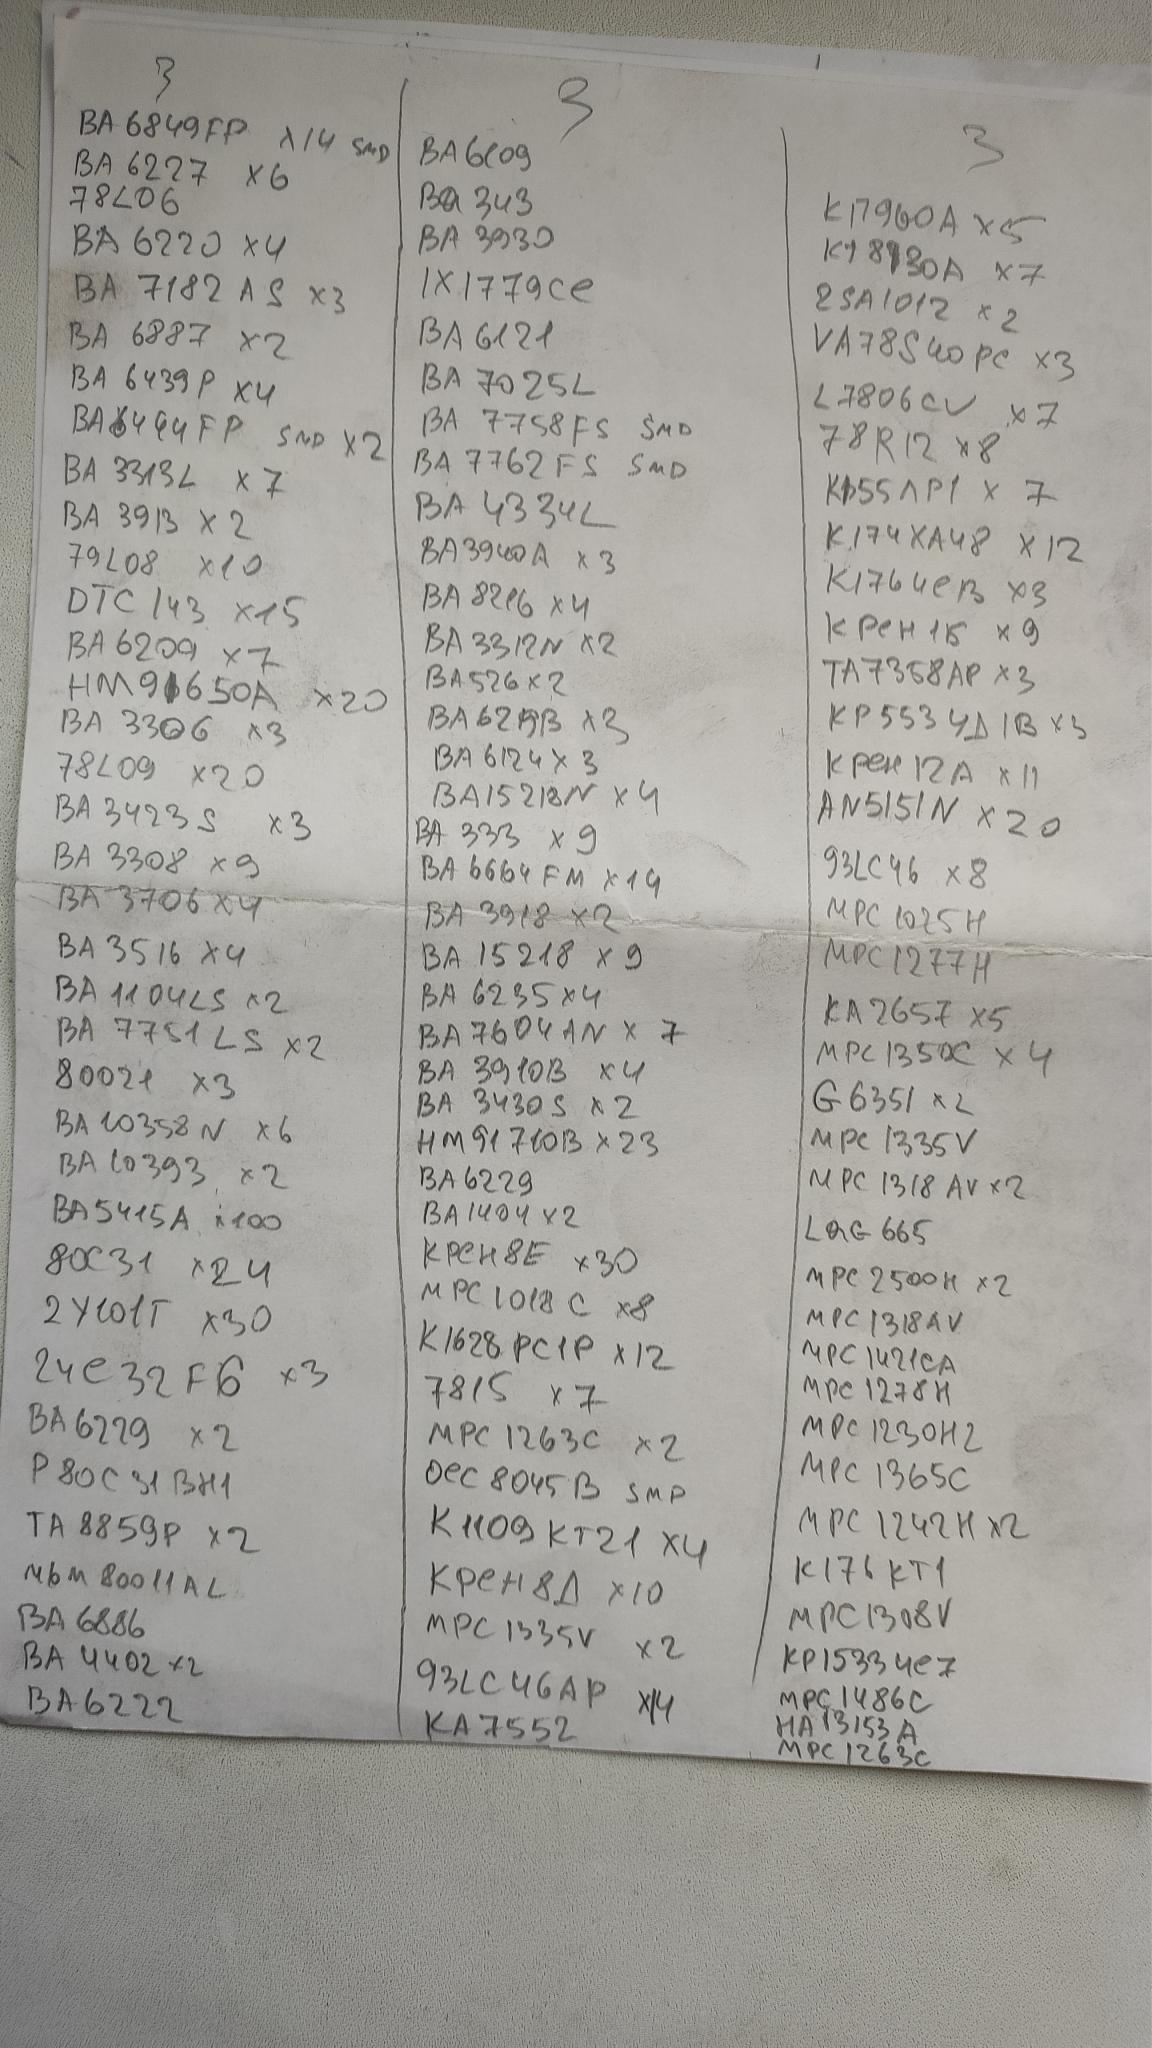 3
BA 6849FP x14 SMD
BA 6227 x6
78L06
BA 6220 x4
BA 7182 AS x3
BA 6887 x2
BA 6439P x4
BA6494FP SMD x2
BA 3313L x7
BA 3913 x2
79L08 x10
DTC 143 x15
BA 6209 x7
HM91650A x20
BA 3306 x3
78L09 x20
BA 3423 S x3
BA 3308 x9
BA 3706 x4
BA 3516 x4
BA 1104LS x2
BA 7751 LS x2
80021 x3
BA 10358N x6
BA 10393 x2
BA5415A x100
80C31 x24
2Y101T x30
24C32F6 x3
BA6229 x2
P 80C31 BH1
TA 8859P x2
M6M80011AL
BA 6886
BA 4402 x2
BA6222
3
BA6109
BA 343
BA 3930
IX1779CE
BA6121
BA 7025L
BA 7758FS SMD
BA 7762FS SMD
BA 4334L
BA3940A x3
BA 8216 x4
BA 3312N x2
BA526 x2
x3
BA 6124 x3
BA15218N x4
BA 333 x9
BA 6664FM x14
BA 3918 x2
BA 15218 x9
BA 6235 x4
BA7604AN x 7
BA 3910B x4
BA 3430S x2
HM91710B x23
BA6229
BA1404 x2
КРЕН8Е x30
MPC1018C x8
К1628РС1Р x12
7815 x7
MPC 1263C x2
OEC 8045B SMD
К1109КТ21 x4
КРЕН8Д x10
MPC 1335V x2
93LC46AP x14
KA7552
3
К17960А x5
x7
2SA1012 x2
VA78S40PC x3
L7806CV x7
78R12 x8
x 7
К174ХА48 x12
К1764СВ x3
КРЕН1Б x9
TA7358AP x3
x3
КРЕН12А x11
AN5151N x20
93LC46 x8
MPC1025H
MPC1277H
KA2657 x5
MPC1350C x4
G6351 x2
MPC 1335V
MPC 1318 AV x2
LAG665
MPC 2500H x2
MPC 1318AV
MPC1421CA
MPC 1278H
MPC1230H2
MPC 1365C
MPC 1242H x2
К176КТ1
MPC1308V
КР1533ИЕ7
MPC1486C
HA13153A
MPC1263C